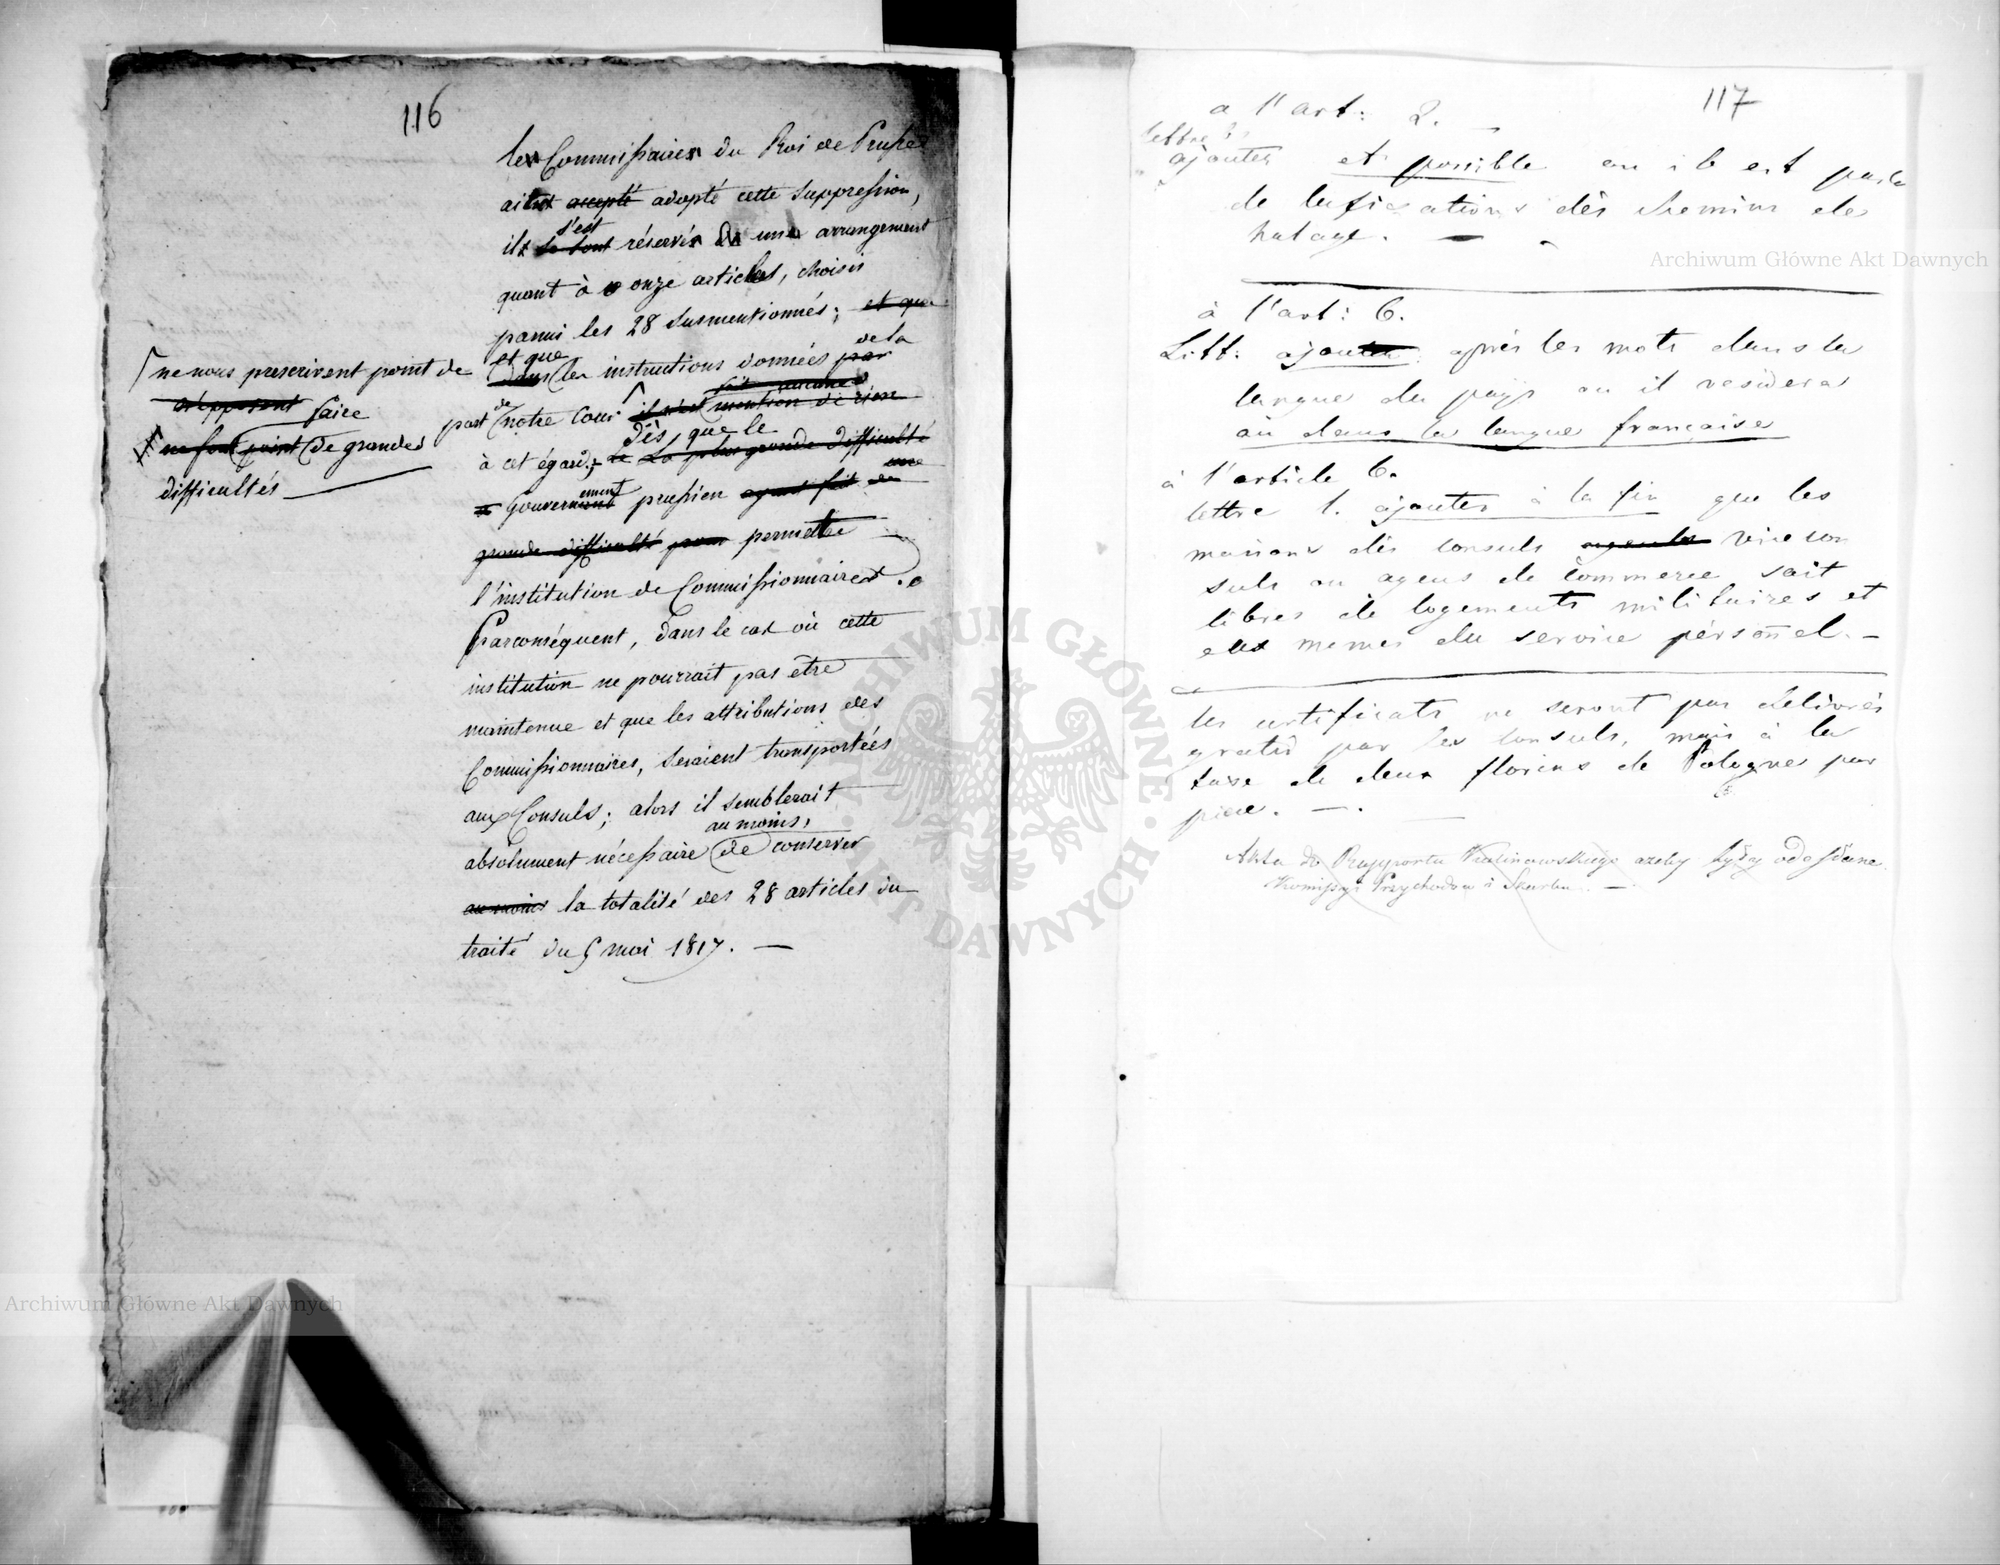 116
les Commissaires du Roi de Prusse
aient accepté adopté cette suppression,
s'est
ils se sont réservés un arrangement
quant à onze articles, choisis
parmi les 28 susmentionnés; et que
de la
et que
dans les instructions données par
fait aucune
part de notre Cour il n'est mention de rien
dès que le
à cet égard; la plus grande difficulté
une
gouvernement prussien ayant fait
grande difficulté pour permettre
l'institution de Commissionnaires.
Parconséquent, dans le cas où cette
institution ne pourrait pas être
maintenue et que les attributions des
Commissionnaires, seraient transportées
aux Consuls; alors il semblerait
au moins,
absolument nécessaire de conserver
au moins la totalité des 28 articles du
traité du 5 mai 1817. —
ne nous prescrivent point de
s'opposent faire
ne font point de grandes
difficultés
117
a l'art: 2.
lettre
ajouter et possible ou il est parlé
de des chemins de
halage. —
à l'art: 6.
Litt: ajouter après les mots dans la
langue du pays ou il residera
ou dans la langue française
à l'article 6.
lettre 1. ajouter à la fin que les
maisons des consuls agents vice con
suls ou agens de commerce soit
libres de logements militaires et
eux memes du service pérsonnel. —
les certificats ne seront pas délivrés
gratis par les consuls, mais à la
taxe de deux florins de Pologne par
pièce. — .
Akta do Rapportu Kalinowskiego azeby były odesłane
Kommissyi Przychodow i Skarbu. —
Archiwum Główne Akt Dawnych
Archiwum Główne Akt Dawnych
ARCHIWUM GŁÓWNE · AKT DAWNYCH ·